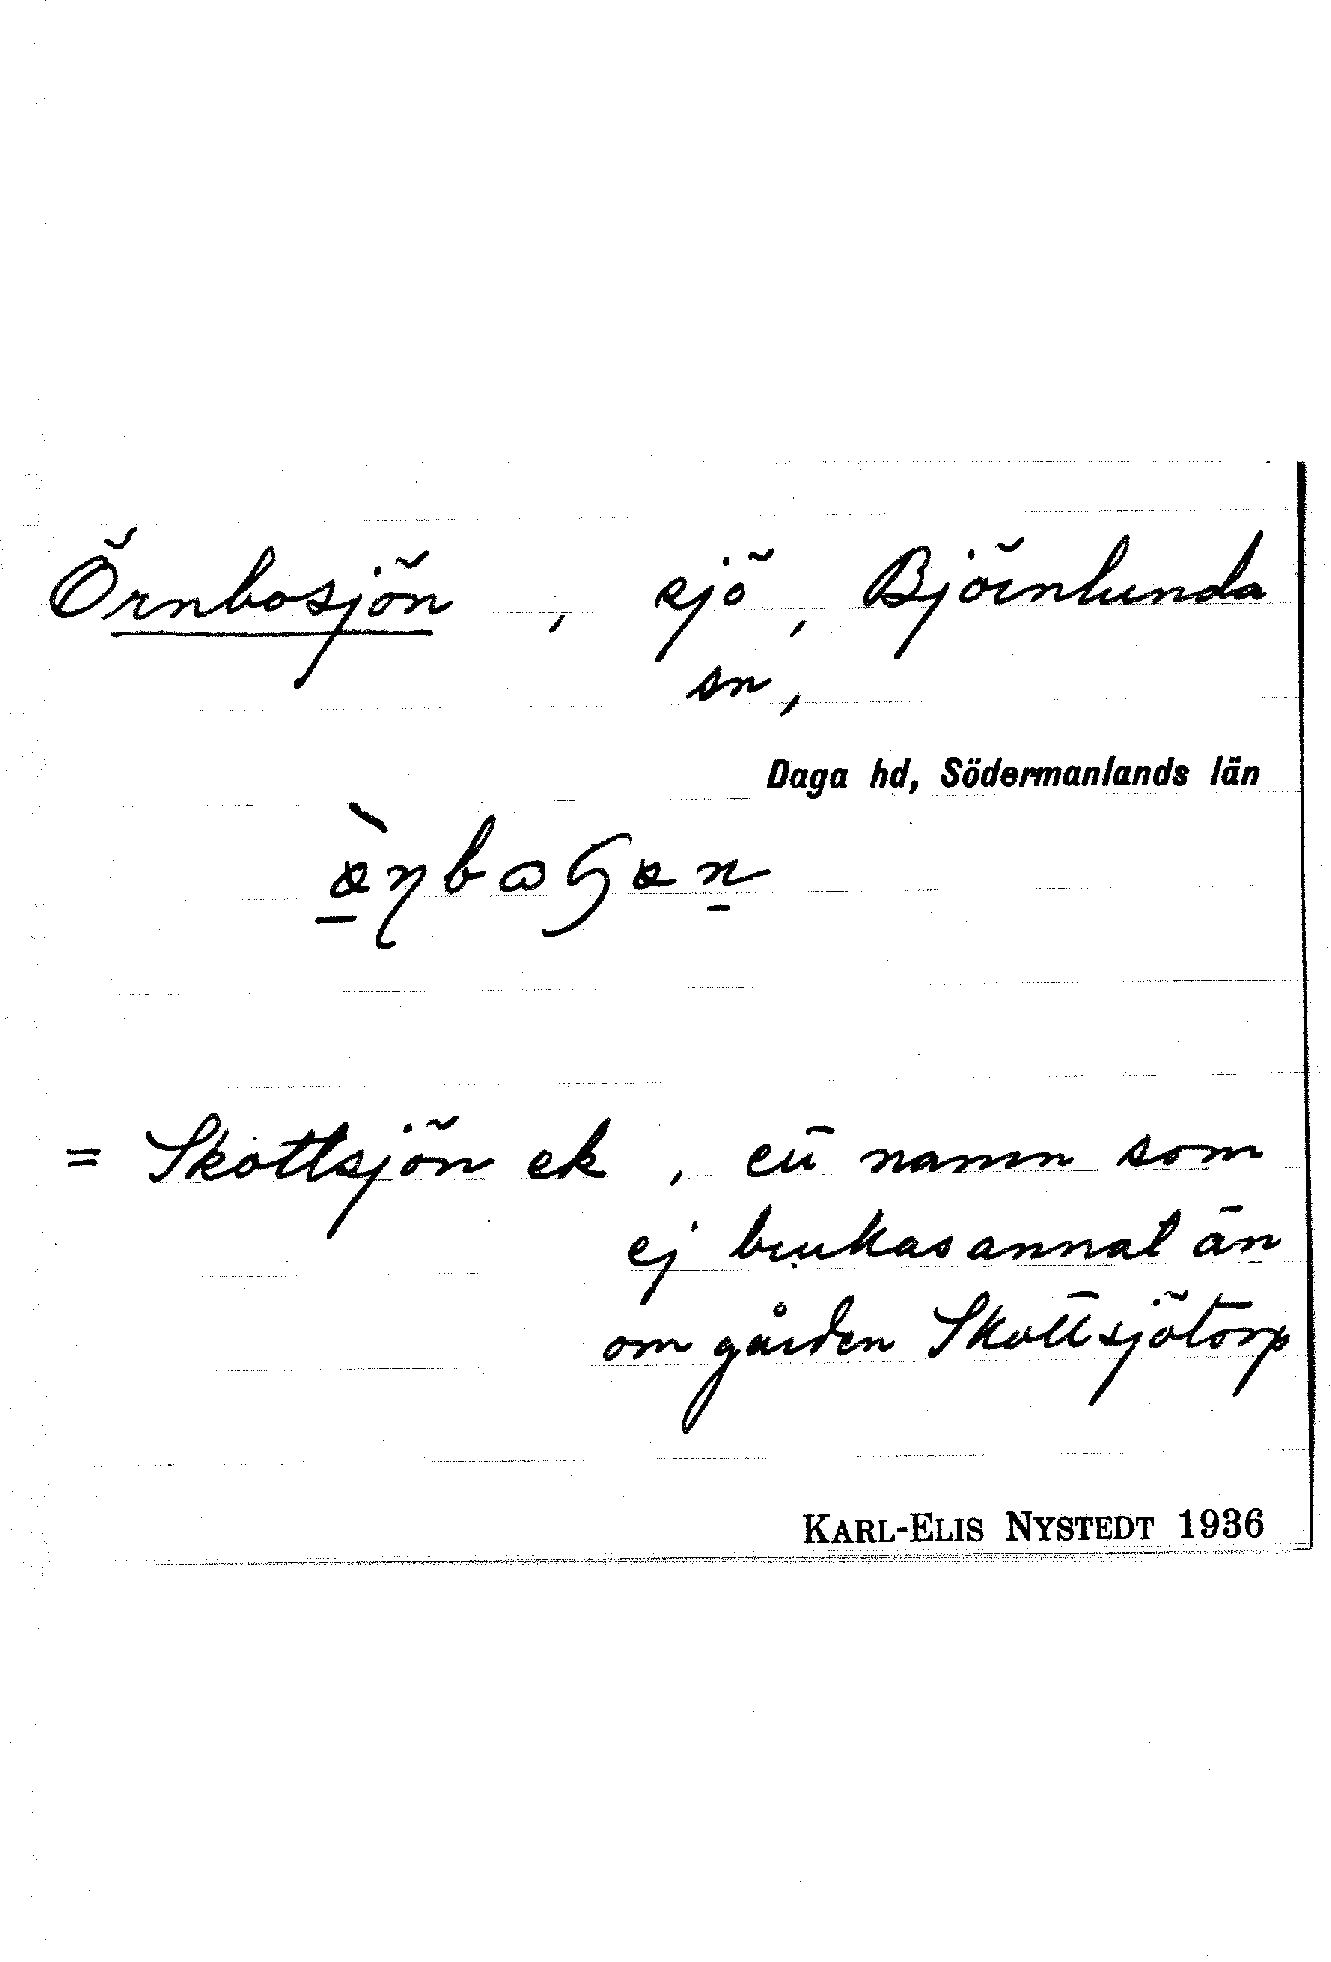 Örnbosjön, sjö, Björnlunda
sn,
Daga hd, Södermanlands län
= Skottsjön ek, ett namn som
ej brukas annat än
om gården Skottsjötorp
KARL-ELIS NYSTEDT 1936